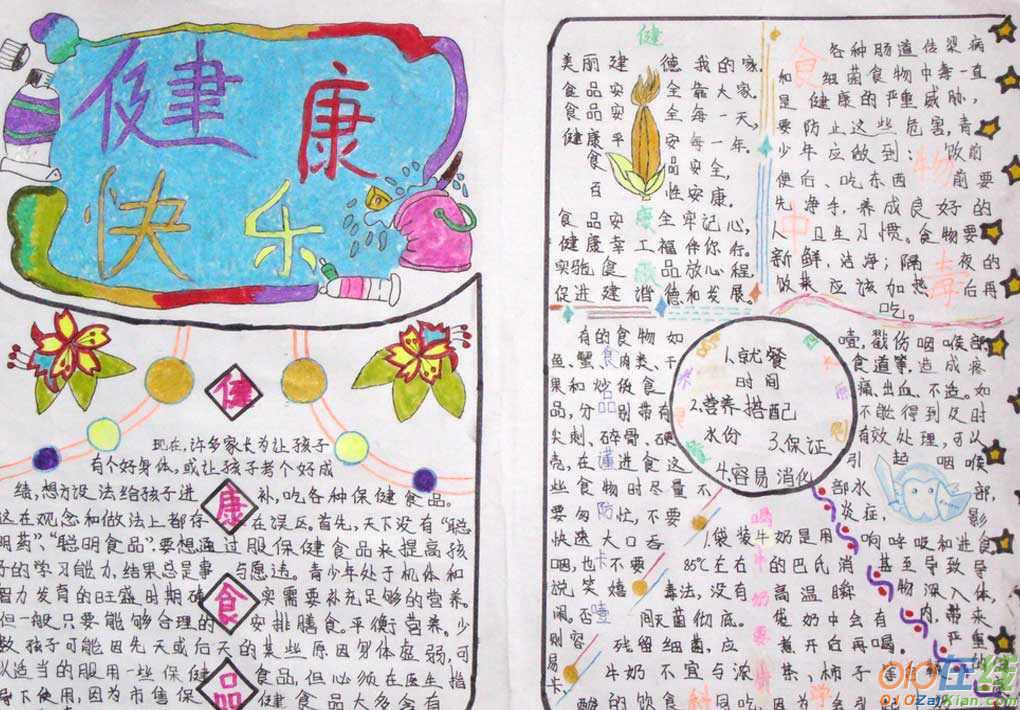 健康
快乐
健
康
食
品
现在,许多家长为让孩子
有个好身体,或让孩子考个好成
绩,想方设法给孩子进补,吃各种保健食品。
这在观念和做法上都存在误区。首先,天下没有“聪
明药”、“聪明食品”.要想通过服保健食品来提高孩
子的学习能力,结果总是事与愿违。青少年处于机体和
智力发育的旺盛时期确实需要补充足够的营养。
但一般只要能够合理的安排膳食。平衡营养。少
数孩子可能因先天或后天的某些原因身体虚弱,可
以适当的服用一些保健食品,但必须在医生指
导下使用,因为市售保健食品大多含有
健康工歌谣
美丽建德我的家.
食品安全靠大家.
食品安全每一天,
健康平安每一年.
食品安全,
百姓安康.
食品安全牢记心,
健康幸福伴你行.
实施食品放心程.
促进建德和发展.
食物中毒
各种肠道传染病
如细菌食物中毒一直
是健康的严重威胁,
要防止这些危害,青
少年应做到:饭前
便后、吃东西前要
先净手,养成良好的
人卫生习惯。食物要
新鲜、洁净;隔夜的
饭菜应该加热后再
吃。
食品谨防噎卡
有的食物如
鱼、蟹、肉类、干
果和烩做食
品,分别带有
尖刺、碎骨、硬
壳,在进食这
些食物时尽量不
要匆忙,不要
快速大口吞
咽,也不要
说笑嬉
闹。否
则容易卡
噎,戳伤咽喉部
食道等,造成疼
痛、出血、不适。如
不能得到及时
有效处理,可以
引起咽喉
部水部,
炎症,影
响呼吸和进食
甚至导致导
物深入体
内,带来
严重
1.就餐
时间
2.营养搭配
水份
3.保证
4.容易消化
喝牛奶要科学
1.袋装牛奶是用
85℃左右的巴氏消
毒法,没有高温瞬
间灭菌彻底。奶中会有
残留细菌,应煮开后再喝.
牛奶不宜与浓茶、柿子等
酸的饮食同吃,因为会引
010在线
010ZaiXian.com